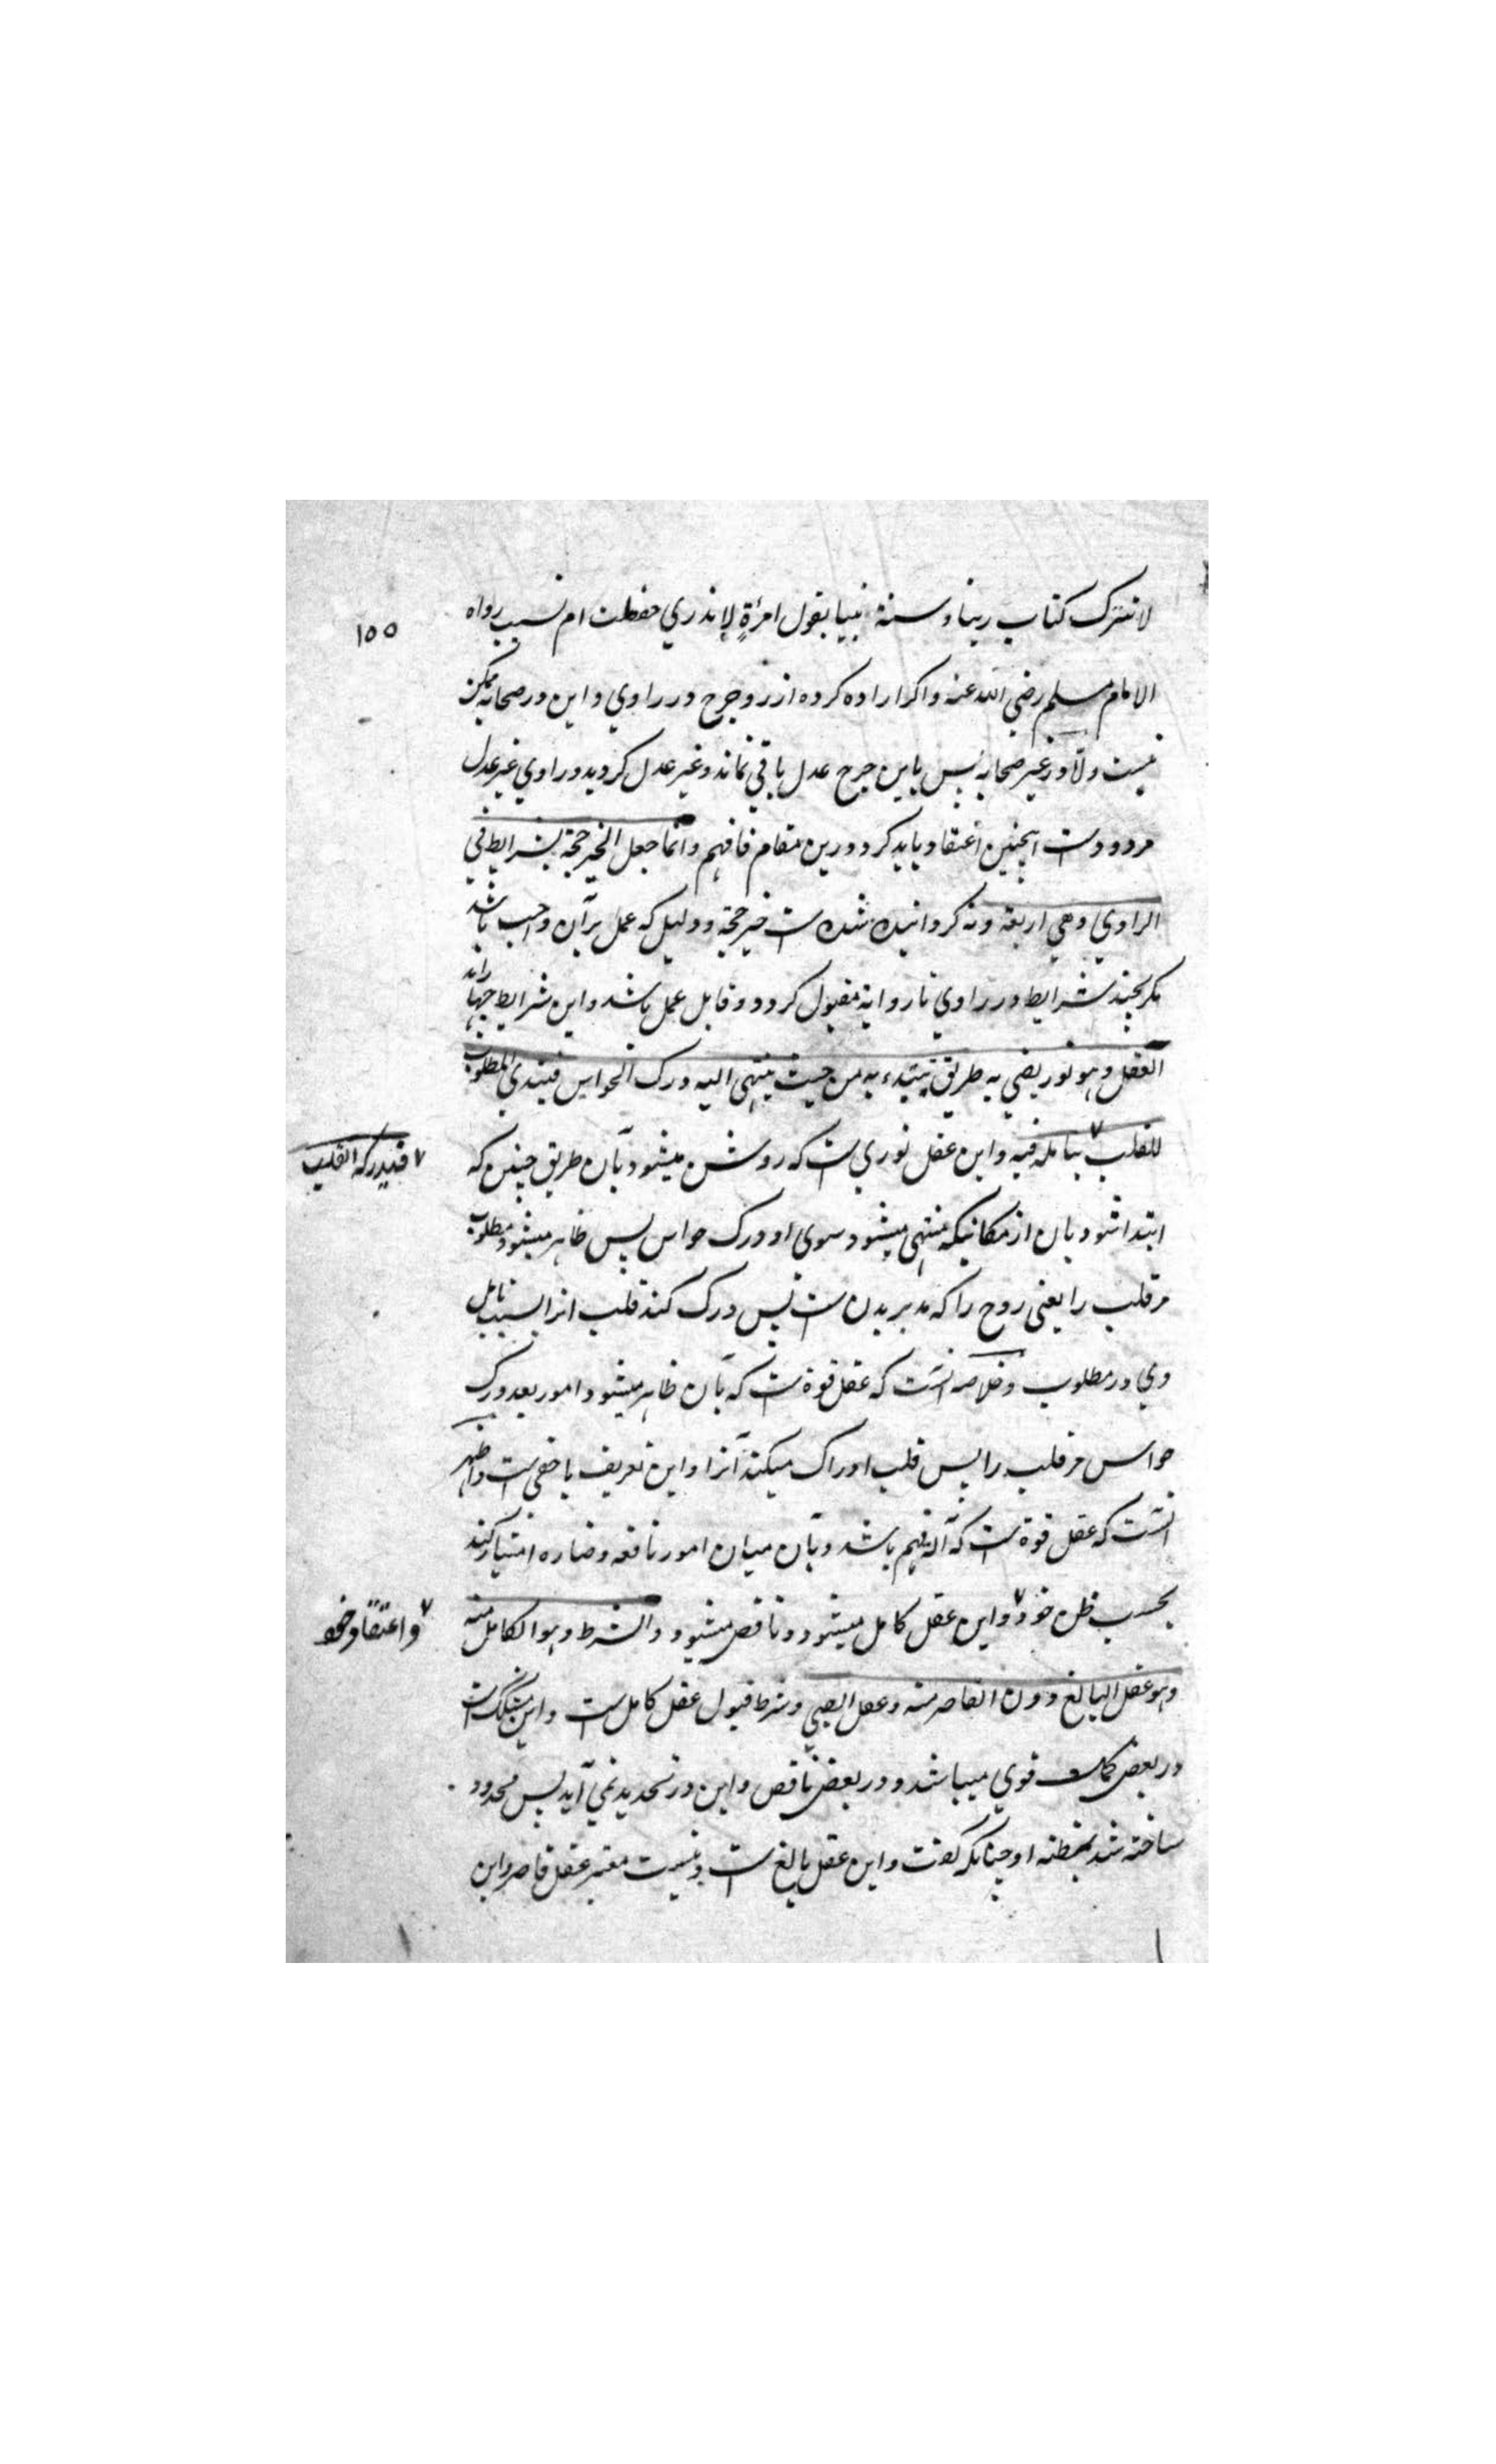 لا نترک کتاب ربنا و سنة نبینا بقول امرأة لا ندري حفظت ام نسیت رواه
۱۵۵
الامام مسلم رضي الله عنه و اکر اراده کرده از رد جرح در راوي و این در صحابه ممکن
نیست و الا در غیر صحابه پس باین جرح عدل باقي نماند و غیر عدل کردید و راوي غیر عدل
مردودست اینچنین اعتقاد باید کرد درین مقام فافهم وانما جعل الخبر حجة بشرایط في
الراوي وهي اربعة و نه کردانیده شده است خبر حجة و دلیل که عمل بر آن واجب باشد
مکر بچند شرایط در راوي تا روایة مقبول کردد و قابل عمل باشد و این شرایط چهار اند
العقل وهو نور یضي به طریق یبتدء به من حیث ینتهي الیه درک الحواس فیبتدي المطلوب
للقلب ٧ بتامله فیه و این عقل نوري است که روشن میشود بآن طریق چنین که
٧ فیدرکه القلب
ابتدا شود بآن از مکانیکه منتهی میشود سوی او درک حواس پس ظاهر میشود مطلوب
مر قلب را یعني روح را که مدبر بدن است پس درک کند قلب انرا بسبب تامل
وي در مطلوب و خلاصه آنست که عقل قوة است که بآن ظاهر میشود امور بعد درک
حواس مر قلب را پس قلب ادراک میکند آنرا و این تعریف باخفی است و اظهر
آنست که عقل قوة است که آله فهم باشد و بآن میان امور نافعه و ضاره امتیاز کند
بحسب ظن خود ٧ و این عقل کامل میشود و ناقص میشود و الشرط وهو الکامل منه
٧ و اعتقاد خود
وهو عقل البالغ دون القاصر منه و عقل الصبي و شرط قبول عقل کامل ست و این مشکک است
در بعض قوي میباشد و در بعض ناقص و این در تحدید نمي آید پس محدود
ساخته شد بمظنه او چنانکه کفت و این عقل بالغ است و نیست معتبر عقل قاصر و این